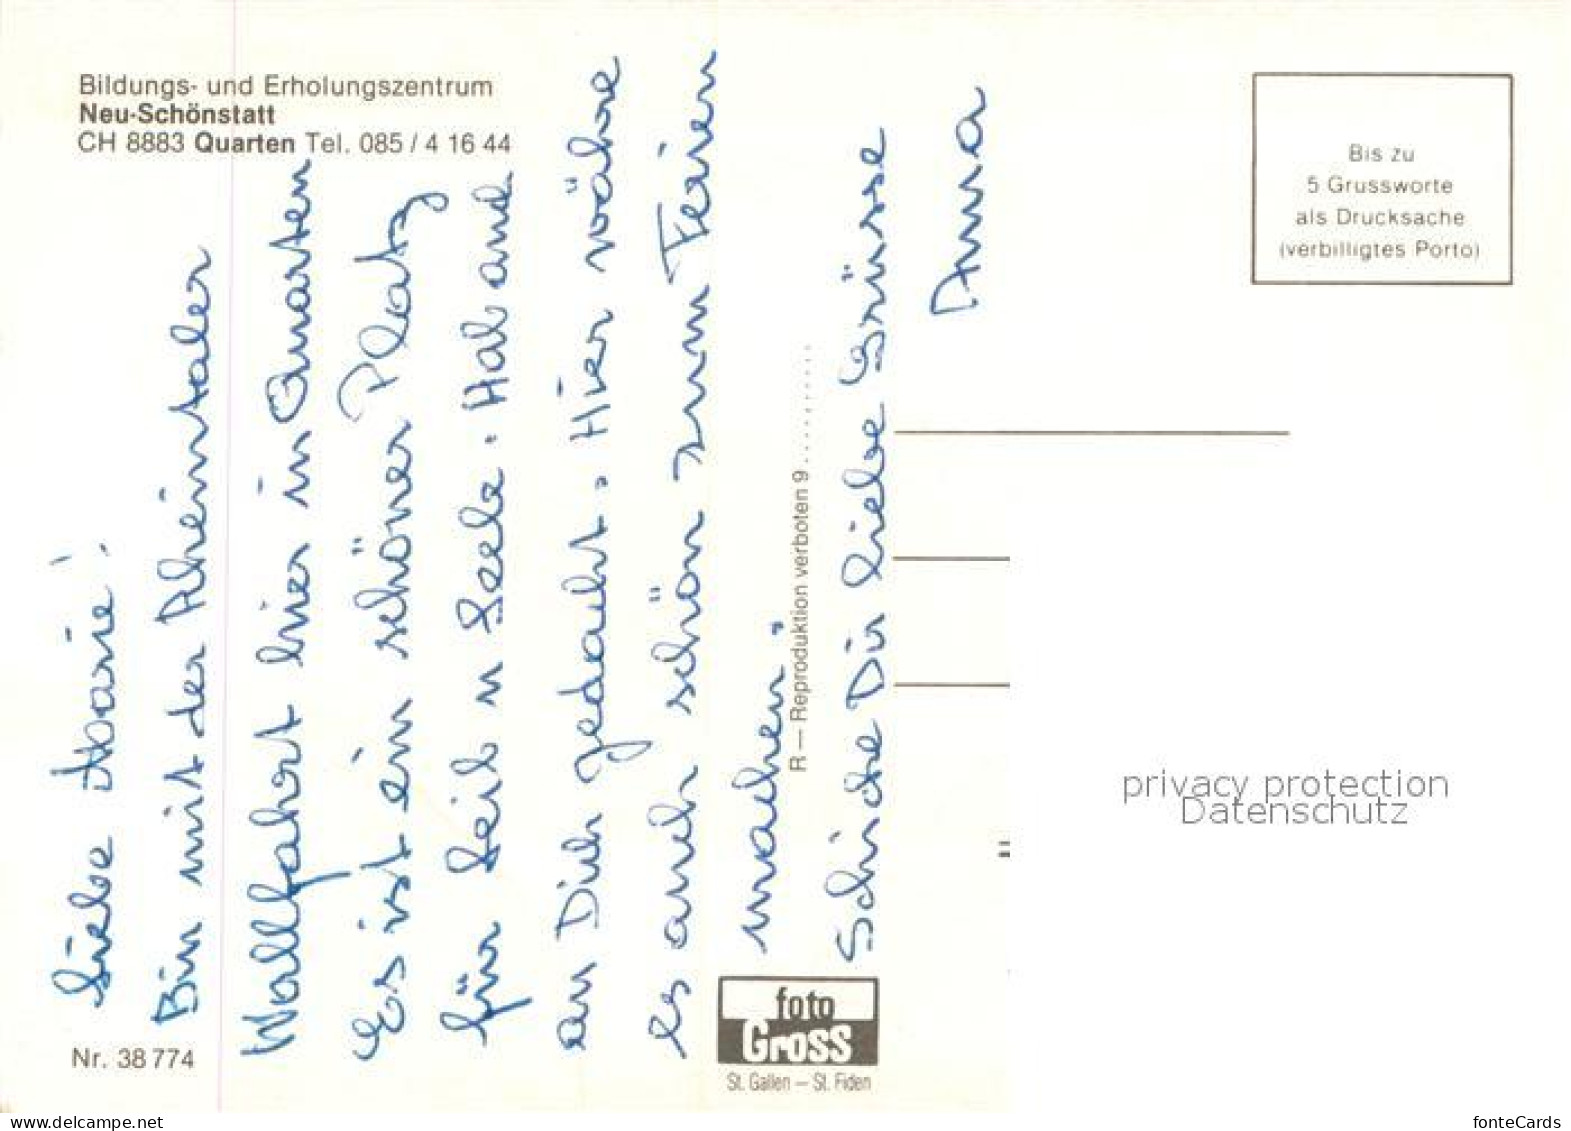 Bildungs- und Erholungszentrum
Neu-Schönstatt
CH 8883 Quarten Tel. 085 / 4 16 44
Liebe Marie!
Bin mit der Rheintaler
Wallfahrt hier in Quarten
Es ist ein schöner Platz
für Leib u Seele. Hab auch
an Dich gedacht. Hier wäre
es auch schön zum Ferien
machen.
Schicke Dir liebe Grüsse
Anna
R — Reproduktion verboten 9..........
Bis zu
5 Grussworte
als Drucksache
(verbilligtes Porto)
privacy protection
Datenschutz
Nr. 38 774
foto
Gross
St. Gallen — St. Fiden
www.delcampe.net
fonteCards